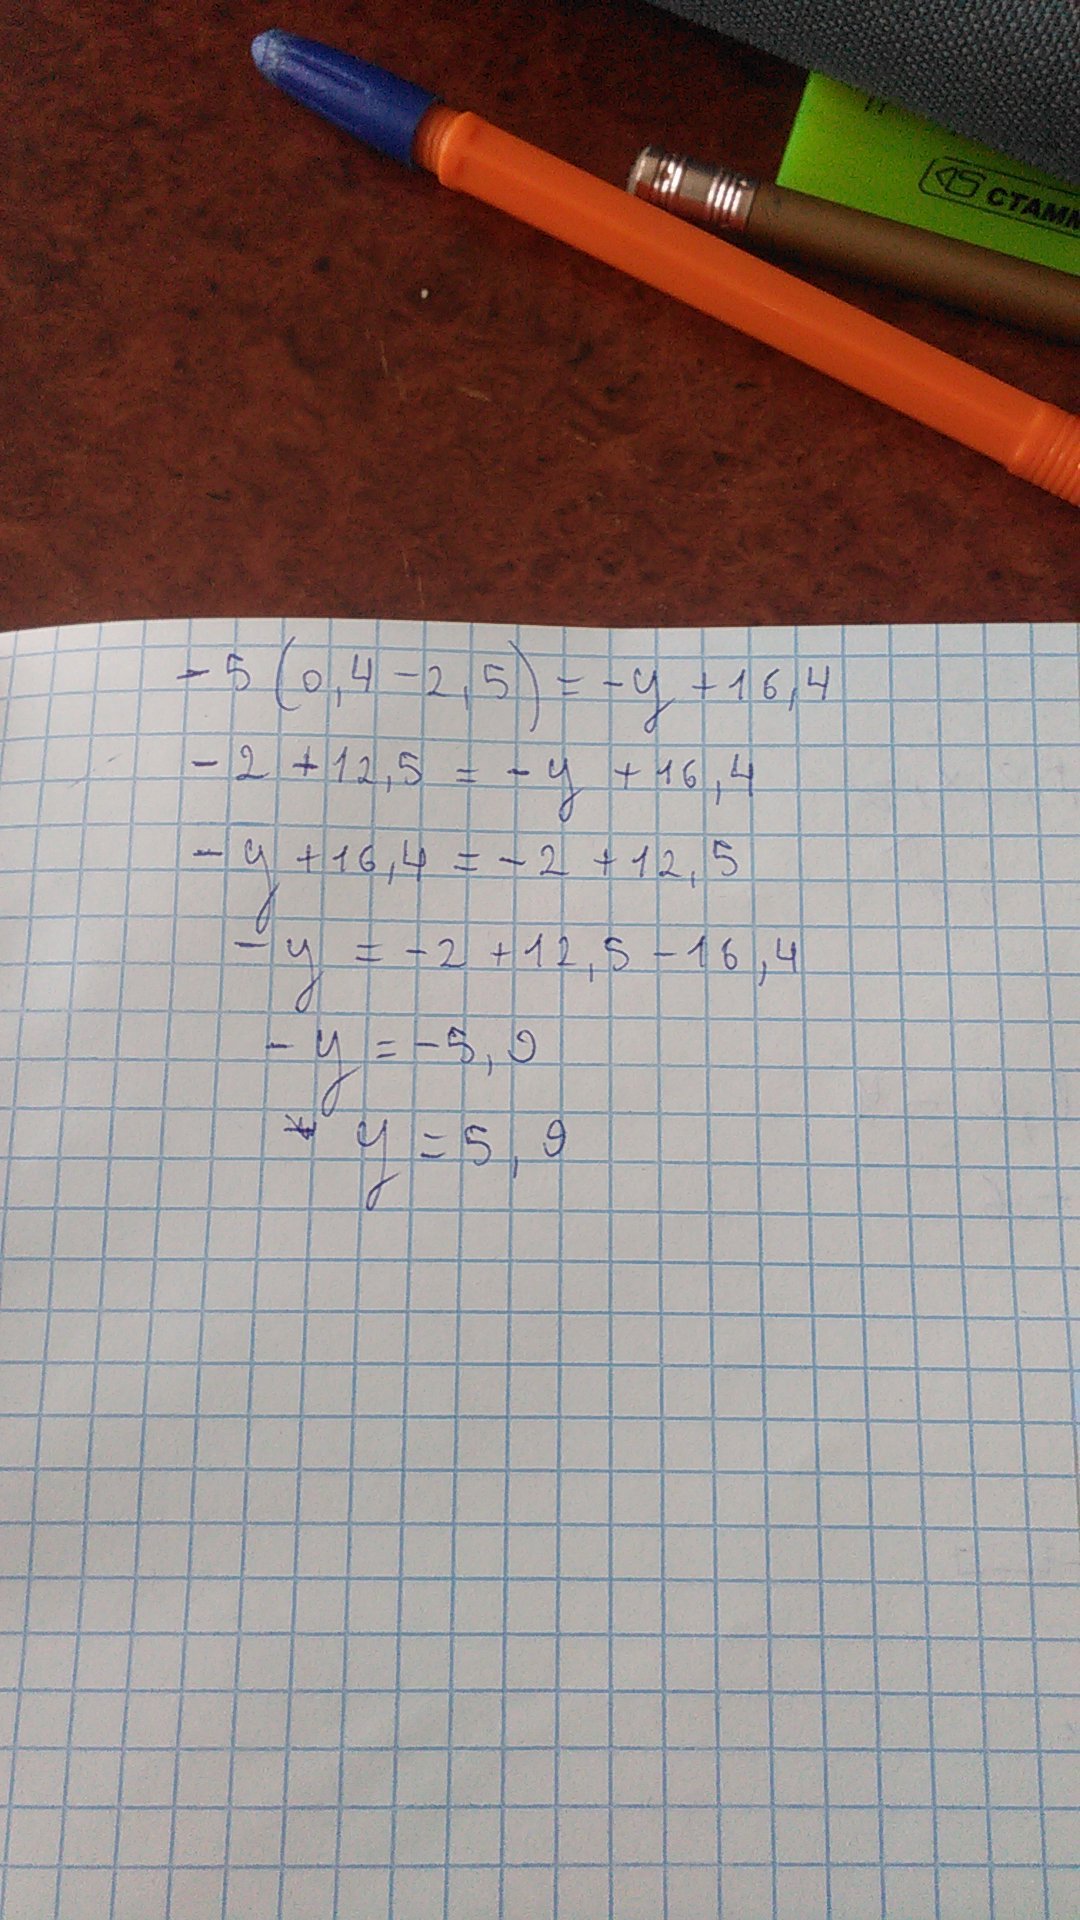 СТАММ
-5(0,4-2,5)=-y+16,4
-2+12,5=-y+16,4
-y+16,4=-2+12,5
-y=-2+12,5-16,4
-y=-5,9
y=5,9